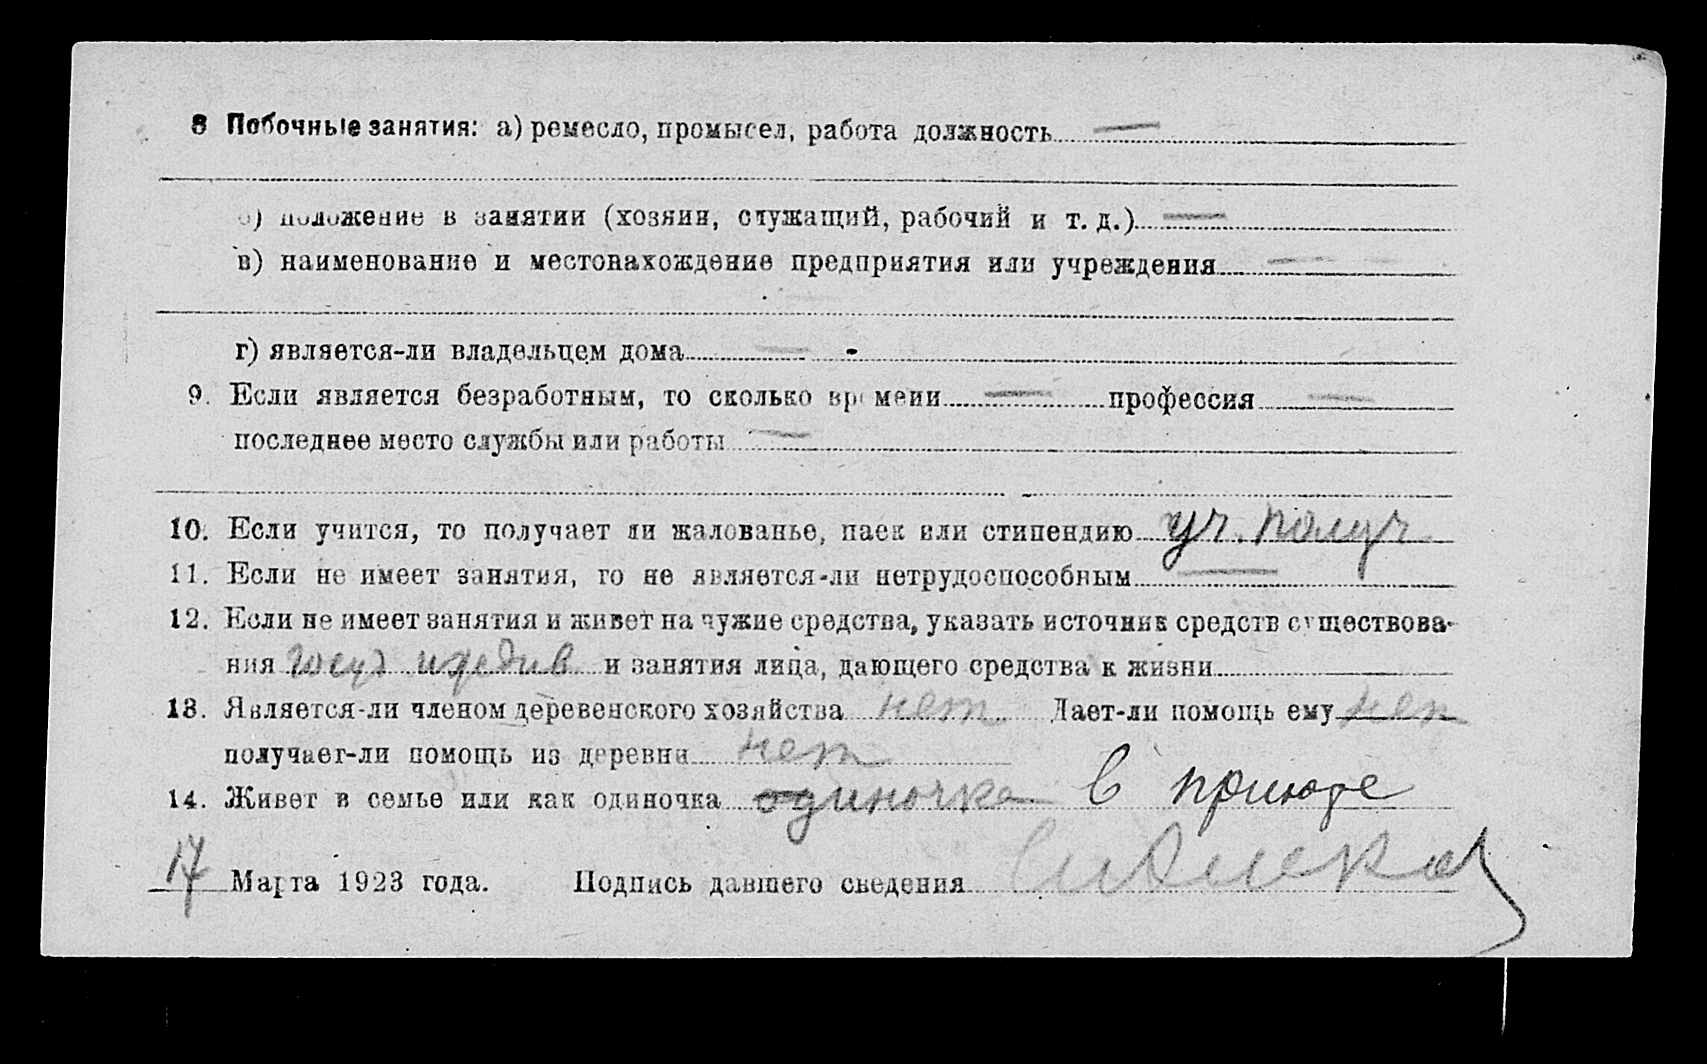 8 Побочные занятия: а) ремесло, промысел, работа должность —
б) положение в занятии (хозяин, служащий, рабочий и т. д.) —
в) наименование и местонахождение предприятия или учреждения —
г) является-ли владельцем дома —
9. Если является безработным, то сколько времени — профессия —
последнее место службы или работы —
10. Если учится, то получает ли жалованье, паек или стипендию уч. получ
11. Если не имеет занятия, то не является-ли нетрудоспособным —
12. Если не имеет занятия и живет на чужие средства, указать источник средств существова-
ния и занятия лица, дающего средства к жизни
13. Является-ли членом деревенского хозяйства нет Дает-ли помощь ему нет
получает-ли помощь из деревни нет
14. Живет в семье или как одиночка одиночка в приюте
17 Марта 1923 года. Подпись давшего сведения